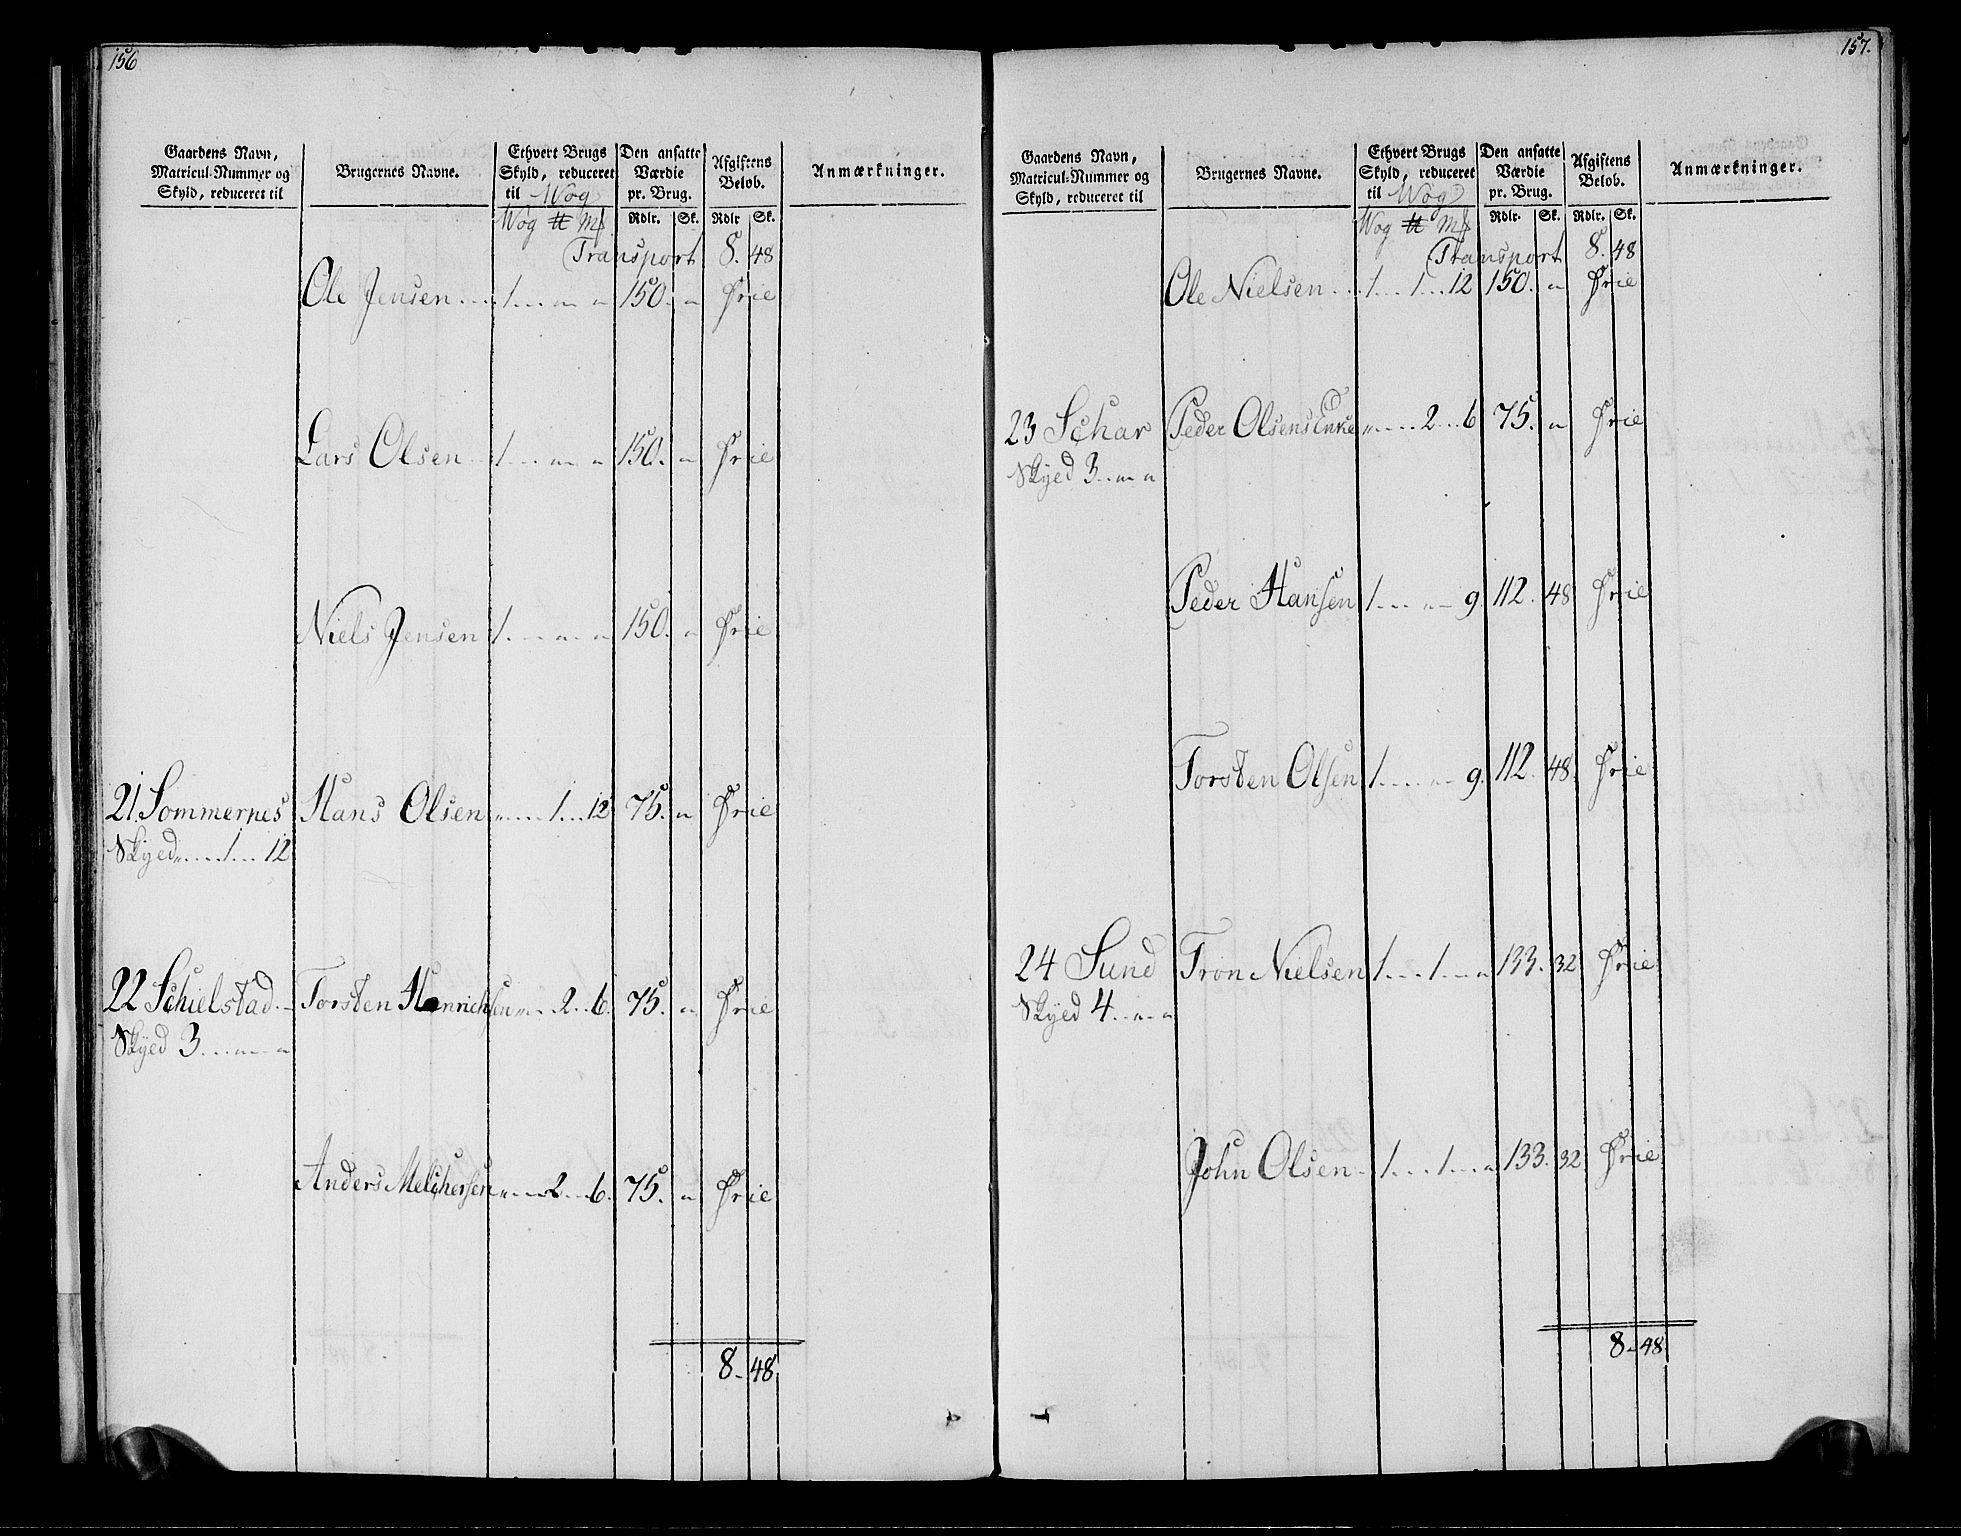 156
Gaardens Navn, Matricul-Nummer og Skyld, reduceret til | Brugernes Navne. | Ethvert Brugs Skyld, reduceret til Wog | Den ansatte Værdie pr. Brug. | Afgiftens Belob. | Anmærkninger.
Wog ℔ Mk | Rdlr. Sk. | Rdlr Sk.
Transport 8. 48
Ole Jensen 1 „ „ 150. „ Frie
Lars Olsen 1 „ „ 150. „ Frie
Niels Jensen 1 „ „ 150. „ Frie
21 Sommernes Hans Olsen „ 1 12 75. „ Frie
Skyed „ 1 12
22 Schielstad Torsten Henrichsen „ 2 6. 75. „ Frie
Skyed 3 „ „
Anders Melchersen „ 2 6. 75. „ Frie
8. 48
157.
Gaardens Navn, Matricul-Nummer og Skyld, reduceret til | Brugernes Navne. | Ethvert Brugs Skyld, reduceret til Wog | Den ansatte Værdie pr. Brug. | Afgiftens Belob. | Anmærkninger.
Wog ℔ Mk | Rdlr. Sk. | Rdlr. Sk.
Transport 8. 48
Ole Nielsen 1 1 12 150. „ Frie
23 Schar Peder Olsens Enke „ 2 6 75. „ Frie
Skyed 3 „ „
Peder Hansen 1 „ 9. 112. 48 Frie
Torsten Olsen 1 „ 9. 112. 48. Frie
24 Sund Tron Nielsen 1 1 „ 133. 32 Frie
Skyed 4 „ „
John Olsen 1 1 „ 133. 32 Frie
8. 48